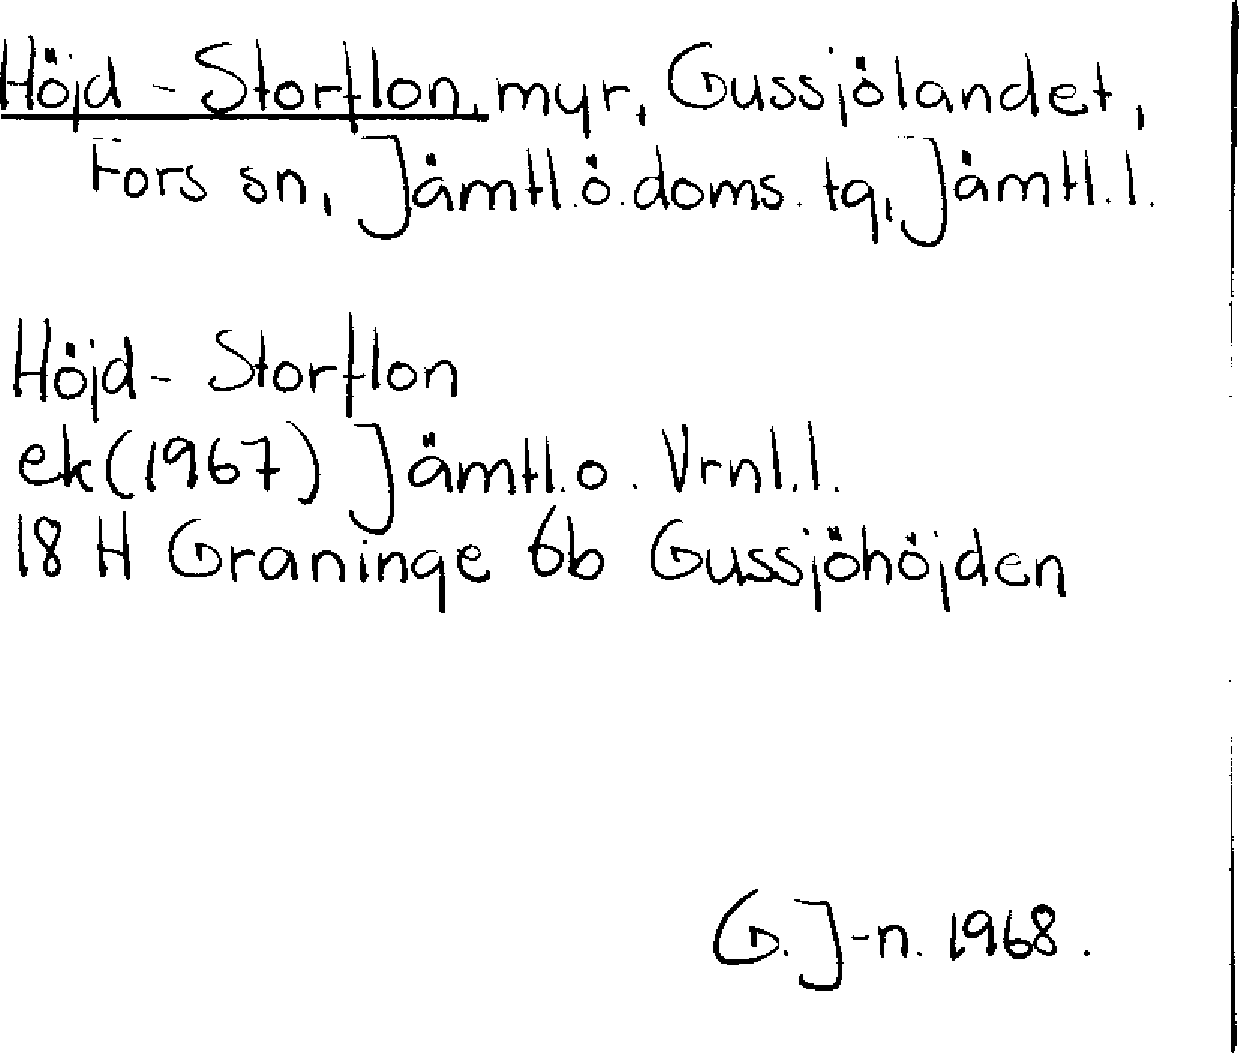 Höjd-Storflon, myr, Gussjölandet,
Fors sn, Jämtl.ö.doms. tg, Jämtl.l.
Höjd-Storflon
ek(1967) Jämtl.o. Vrnl.l.
18 H Graninge 6b Gussjöhöjden
G.J-n. 1968.